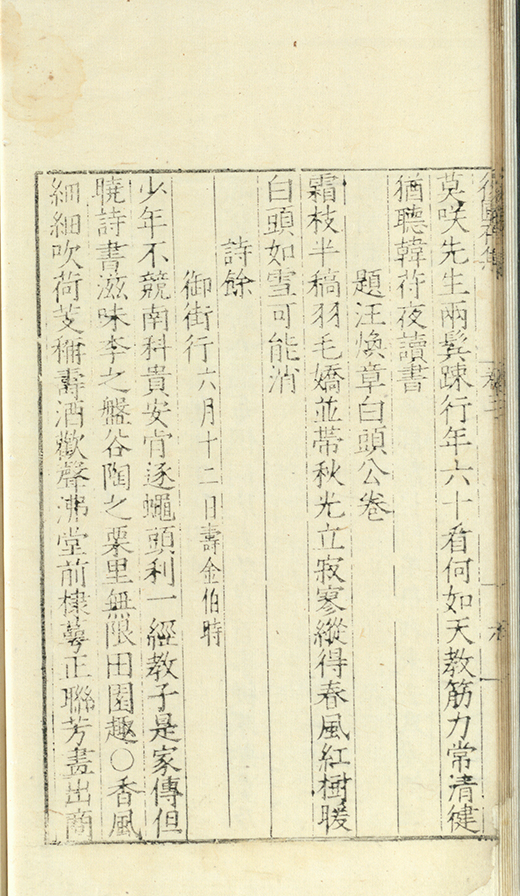 莫咲先生兩鬂踈行年六十看何如天教筋力常清健
猶聽韓符夜讀書
題汪煥章白頭公卷
霜枝半稿羽毛嬌並蔕秋光立寂寥縱得春風紅樹暖
白頭如雪可能消
詩餘
御街行六月十二日壽金伯時
少年不競南科貴安肯逐蠅頭利一經教子是家傳但
曉詩書滋味李之盤谷陶之栗里無限田園趣○香風
細細吹荷芰稱壽酒歡聲沸堂前棣萼正聯芳畫出商